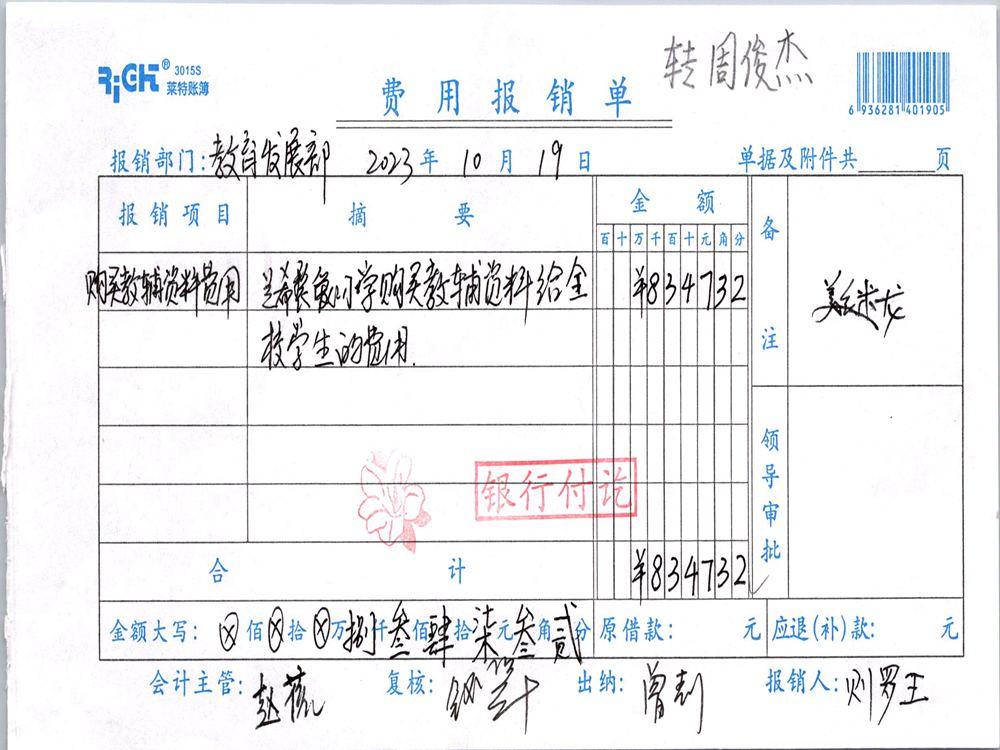 RiGHT® 3015S
莱特账簿
费用报销单
转周俊杰
6 936281 401905
报销部门:教育发展部 2023年10月19日 单据及附件共 页
报销项目 摘要 金额 备注
百 十 万 千 百 十 元 角 分
购买教辅资料费用 希 小学购买教辅资料给全 ¥834732
校学生的费用.
龙
银行付讫
领导审批
合计 ¥834732
金额大写: ⊗佰⊗拾⊗万捌仟叁佰肆拾柒元叁角贰分 原借款: 元 应退(补)款: 元
会计主管: 赵 复核: 出纳: 曾 报销人: 罗王